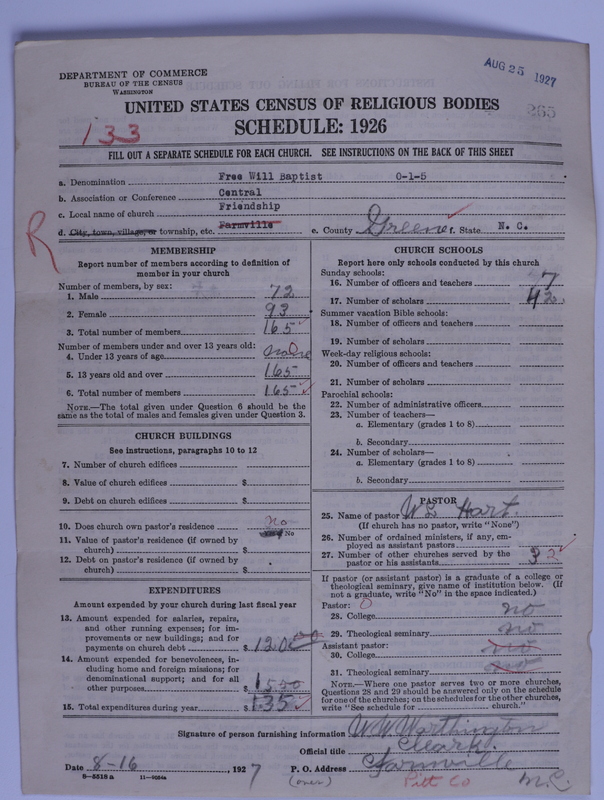 AUG 25 1927
DEPARTMENT OF COMMERCE
BUREAU OF THE CENSUS
WASHINGTON
265
UNITED STATES CENSUS OF RELIGIOUS BODIES
133
SCHEDULE: 1926
FILL OUT A SEPARATE SCHEDULE FOR EACH CHURCH. SEE INSTRUCTIONS ON THE BACK OF THIS SHEET
a. Denomination Free Will Baptist 0-1-5
b. Association or Conference Central
c. Local name of church Friendship
R
d. City, town, village, or township, etc. Farmville e. County Greene f. State N. C.
MEMBERSHIP
Report number of members according to definition of
member in your church
Number of members, by sex:
1. Male 72
2. Female 93
3. Total number of members 165
Number of members under and over 13 years old:
4. Under 13 years of age none
5. 13 years old and over 165
6. Total number of members 165 ✓
NOTE.—The total given under Question 6 should be the
same as the total of males and females given under Question 3.
CHURCH BUILDINGS
See instructions, paragraphs 10 to 12
7. Number of church edifices
8. Value of church edifices $
9. Debt on church edifices $
10. Does church own pastor's residence no
No
11. Value of pastor's residence (if owned by
church) $
12. Debt on pastor's residence (if owned by
church) $
EXPENDITURES
Amount expended by your church during last fiscal year
13. Amount expended for salaries, repairs,
and other running expenses; for im-
provements or new buildings; and for
payments on church debt $ 120
14. Amount expended for benevolences, in-
cluding home and foreign missions; for
denominational support; and for all
other purposes $ 15 00
15. Total expenditures during year $ 135 ✓
CHURCH SCHOOLS
Report here only schools conducted by this church
Sunday schools:
16. Number of officers and teachers 7
17. Number of scholars 42
Summer vacation Bible schools:
18. Number of officers and teachers
19. Number of scholars
Week-day religious schools:
20. Number of officers and teachers
21. Number of scholars
Parochial schools:
22. Number of administrative officers
23. Number of teachers—
a. Elementary (grades 1 to 8)
b. Secondary
24. Number of scholars—
a. Elementary (grades 1 to 8)
b. Secondary
PASTOR
25. Name of pastor W L Hart
(If church has no pastor, write "None")
26. Number of ordained ministers, if any, em-
ployed as assistant pastors
27. Number of other churches served by the
pastor or his assistants 3 2 ✓
If pastor (or assistant pastor) is a graduate of a college or
theological seminary, give name of institution below. (If
not a graduate, write "No" in the space indicated.)
Pastor: 0
28. College no
29. Theological seminary no
Assistant pastor:
30. College no
31. Theological seminary no
NOTE.—Where one pastor serves two or more churches,
Questions 28 and 29 should be answered only on the schedule
for one of the churches; on the schedules for the other churches,
write "See schedule for church."
Signature of person furnishing information W W Worthington
Official title Cleark
Date 8-16, 1927 P. O. Address Farmville
8-5518 a 11-9064a (over) Pitt Co N.C.